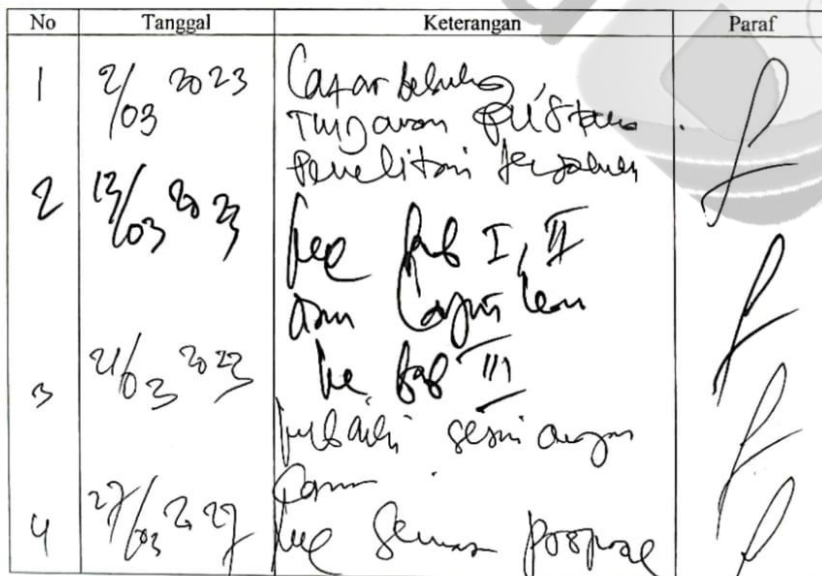 No Tanggal Keterangan Paraf
1 2/03 2023 Latar belakang
Tinjauan pustaka
Penelitian terdahulu
2 13/03 2023 Acc bab I, II
dan Lanjutkan
ke bab III
3 21/03 2023
perbaiki sesuai dengan
saran
4 27/03 Acc Seminar proposal